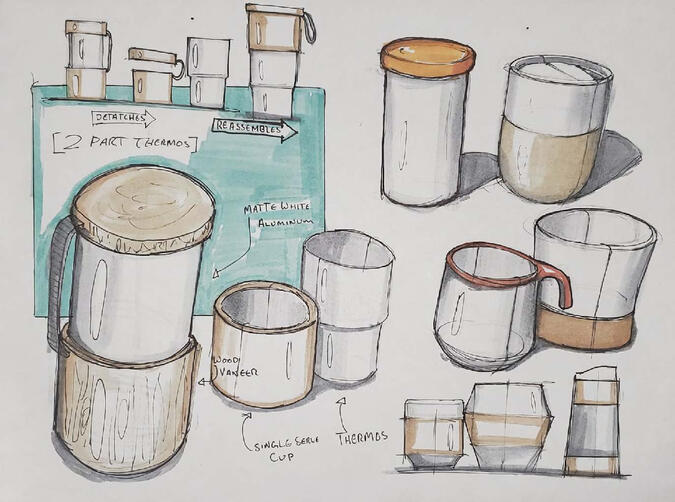 DETATCHES
REASSEMBLES
[2 PART THERMOS]
MATTE WHITE
ALUMINUM
WOOD
VANEER
SINGLE SERVE
CUP
THERMOS